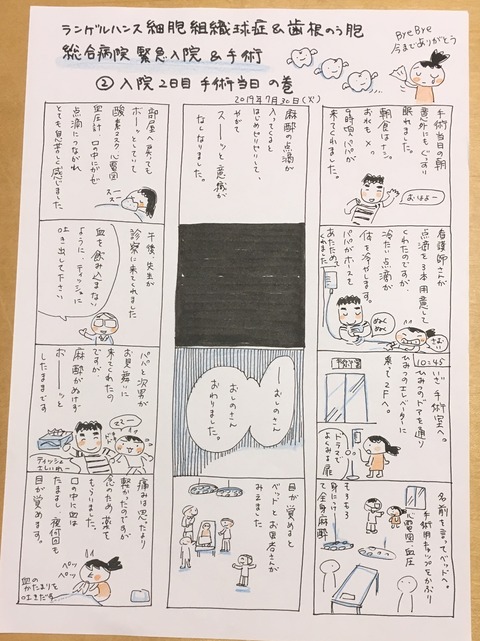 ランゲルハンス細胞組織球症&歯根のう胞
総合病院 緊急入院 & 手術
② 入院2日目 手術当日 の巻
2019年7月30日(火)
Bye Bye
今までありがとう
手術当日の朝
意外にもぐっすり
眠れました。
朝食はナシ。
お水も×。
9時頃、パパが
来てくれました。
おはよー
看護師さんが
点滴を3本用意して
くれたのですが、
冷たい点滴が
体を冷やします。
パパがホースを
あたためて
くれました
ぬくぬく
さむい
10:45
いざ手術室へ。
ひみつのドアを通り
ひみつのエレベーターに
乗って2Fへ。
手術室
ドラマで
よくみる扉
名前を言ってベッドへ。
手術用キャップをかぶり
心電図、血圧
そろそろ
身につけて
全身麻酔
麻酔の点滴が
入ってくると
はじめピリピリして、
やがて
スーッと意識が
なくなりました。
―おしのさん
おしのさん
おわりました。
目が覚めると
ベッドとお医者さんが
みえました。
部屋へ戻っても
ボーッとしていて
酸素マスク、心電図
血圧計、口の中にガーゼ
点滴につながれ
とても息苦しく感じました。
スー
スー
午後、先生が
診察に来てくれました
血を飲み込まない
ように、ティッシュに
吐き出して下さい
パパと次男が
お見舞いに
来てくれたの
ですが
麻酔がぬけず
ボーッと
したままです
ママー
ティッシュ
さしいれ
痛みは思ったより
軽かったのですが
念のため薬を
もらいました。
口の中に血は
たまるし、夜何回も
目が覚めます。
ペッ
ペッ
血の
かたまりを
吐きだす